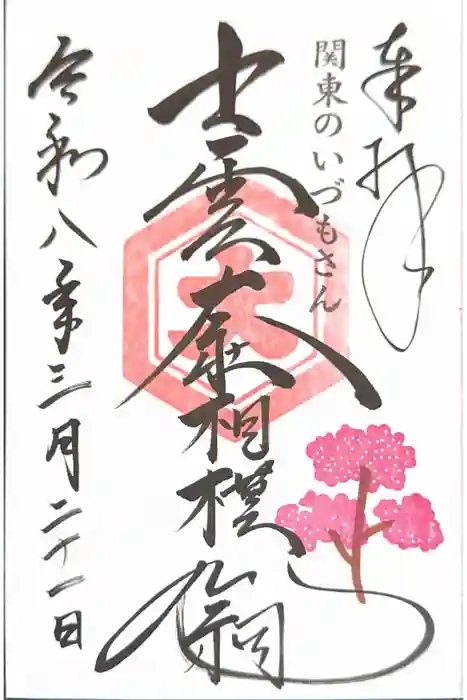 奉拝
関東のいづもさん
出雲大社相模分祠
令和八年三月二十一日
大